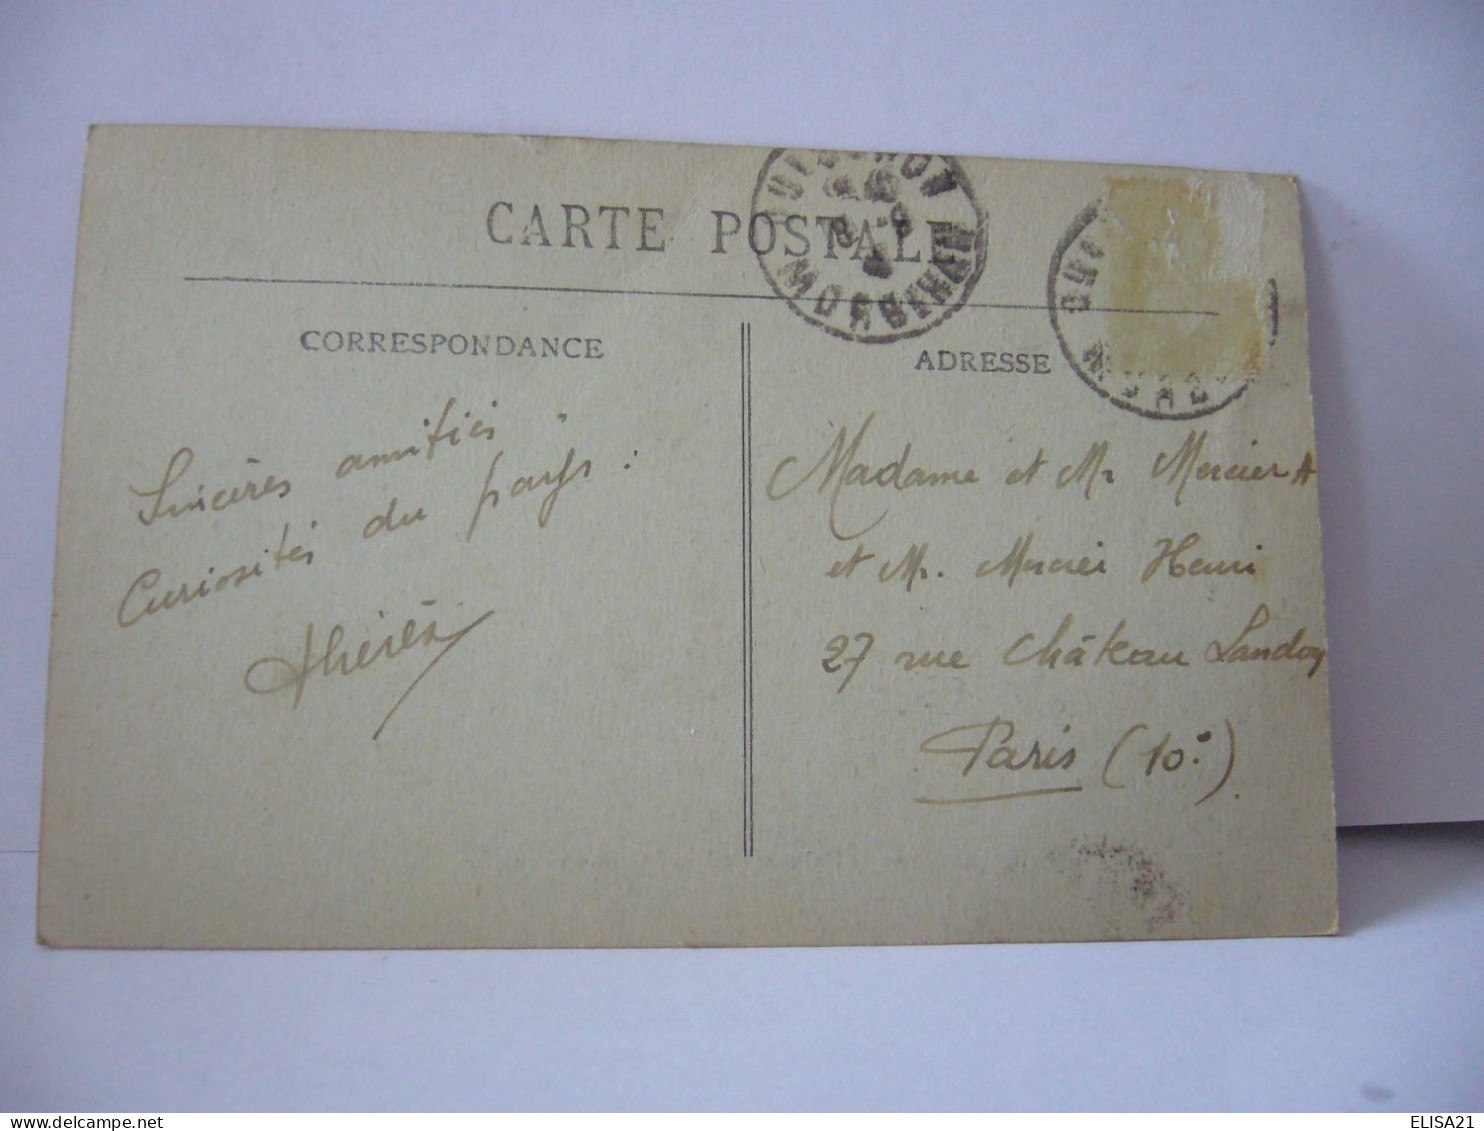 CARTE POSTALE
QUIBERON
MORBIHAN
CORRESPONDANCE
ADRESSE
Sincères amitiés
Curiosités du pays :
Thérèse
Madame et Mr Mercier A
et Mr. Mercier Henri
27 rue Château Landon
Paris (10e)
ELISA21